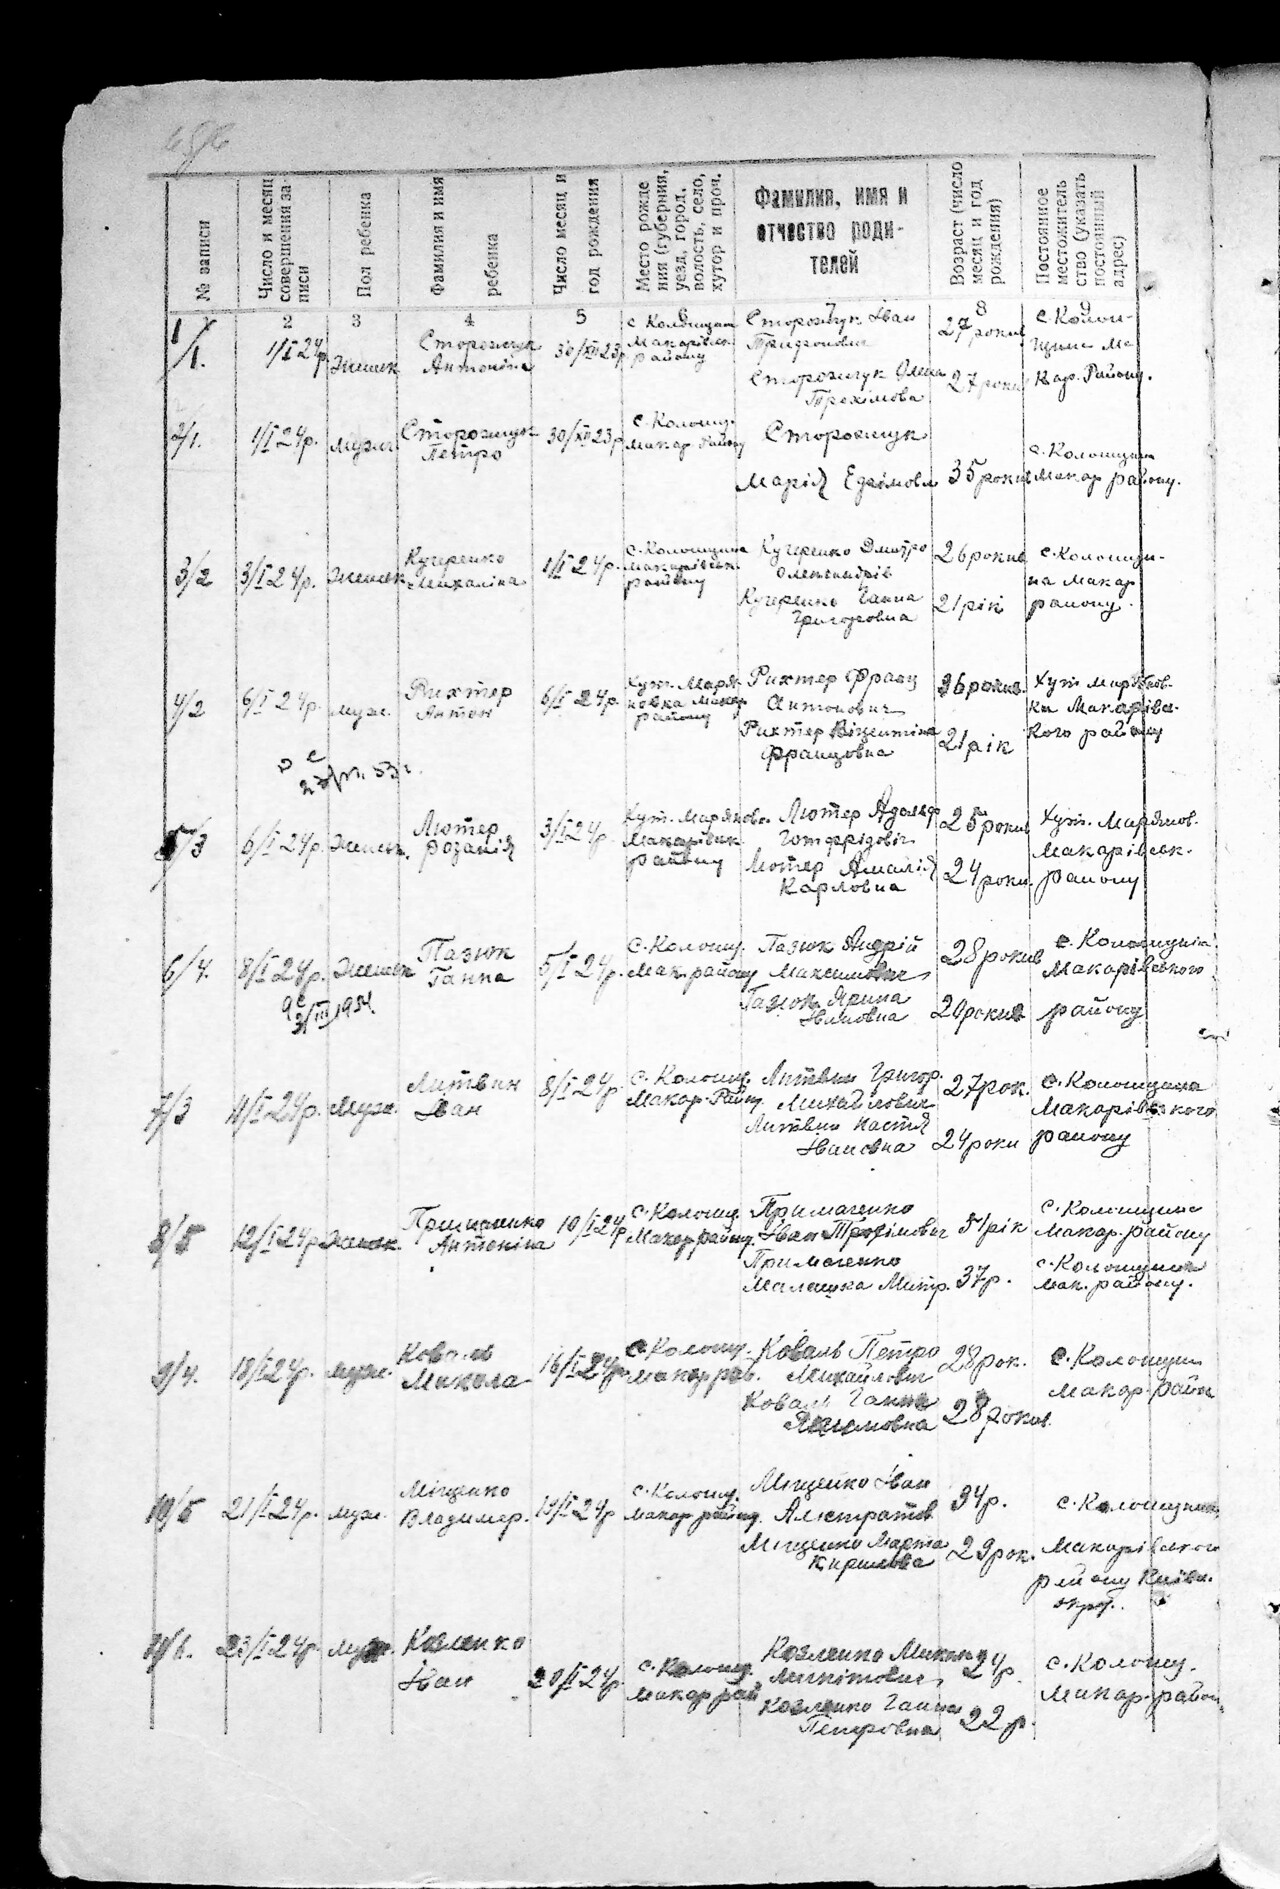 № записи
Число и месяц
совершения за-
писи
Пол ребенка
Фамилия и имя
ребенка
Число месяц и
год рождения
Место рожде
ния (губерния,
уезд, город,
волость, село,
хутор и проч.
Фамилия, имя и
отчество роди-
телей
Возраст (число
месяц и год
рождения)
Постоянное
местожитель
ство (указать
постоянный
адрес)
2 3 4 5 8
1/1.
1/I 24р.
Сторожук
Антоніна
30/XII 23р.
с. Колонщина
Макарівськ
району
Сторожук Іван
Сторожук Олена
27 років
27 років
с. Колон-
щина Ма
кар. Району.
2/1.
1/I 24р.
Сторожук
Петро
30/XII 23р.
с. Колонщ.
Макар району
Сторожук
Марія Єфімовн
35 років
с. Колонщина
Макар району.
3/2
3/I 24р.
Кучеренко
Михаліна
1/I 24р.
с. Колонщина
Макарівськ
району
Кучеренко Дмитро
Кучеренко Ганна
Григоровна
26 років
21 рік
с. Колонщи-
на Макар
району.
4/2
6/I 24р.
муж.
Рихтер
Антон
6/I 24р.
Хут. Маря
новка Макар
району
Рихтер Франц
Антонович
Рихтер Віцентіна
Францовна
36 років.
21 рік
Хут Марянов-
ка Макарівс-
кого району
5/3
6/I 24р.
Лютер
Розалія
3/I 24р.
Хут. Марянов.
Макарівск
району
Лютер Адольф
Готфрідовіч
Лютер Амалія
Карловна
25 років
24 роки.
Хут. Марянов.
Макарівськ.
району
6/4.
8/I 24р.
1954
Пазюк
Ганна
5/I 24р.
с. Колонщ.
Мак. району
Пазюк Андрій
Максимович
Пазюк Ярина
Івановна
28 років
20 років
с. Колонщина
Макарівського
району
7/3
11/I 24р.
Муж.
Литвин
Іван
8/I 24р
с. Колонщ.
Макар. Район
Литвин Григор.
Михайлович
Литвин Настя
Івановна
27 рок.
24 роки
с. Колонщина
Макарівского
району
8/5
12/I 24р
Примаченко
Антоніна
10/I 24р
с. Колонщ.
Макар району.
Примаченко
Іван Трофімович
Примаченко
Малашка Митр.
51 рік
37р.
с. Колонщина
Макар. району
с. Колонщина
Мак. району.
9/4.
18/I 24р.
муж.
Коваль
Микола
16/I 24р.
с. Колонщ.
Макар рай.
Коваль Петро
Михайлович
Коваль Ганна
Якимовна
28 рок.
28 роки.
с. Колонщин
Макар. райн
10/5
21/I 24р.
муж.
Міщенко
Владимер.
19/I 24р
с. Колонщ.
Макар району.
Міщенко Іван
Міщенко Марта
Кирилова
34р.
29 рок.
с. Колонщина
Макарівського
району Київс.
окр.
11/6.
23/I 24р.
муж.
Козленко
Іван
20/I 24р.
с. Колонщ.
Макар рай
Козленко Микола
Микітович
Козленко Ганна
Петровна
24р.
22 р.
с. Колонщ.
Макар. район